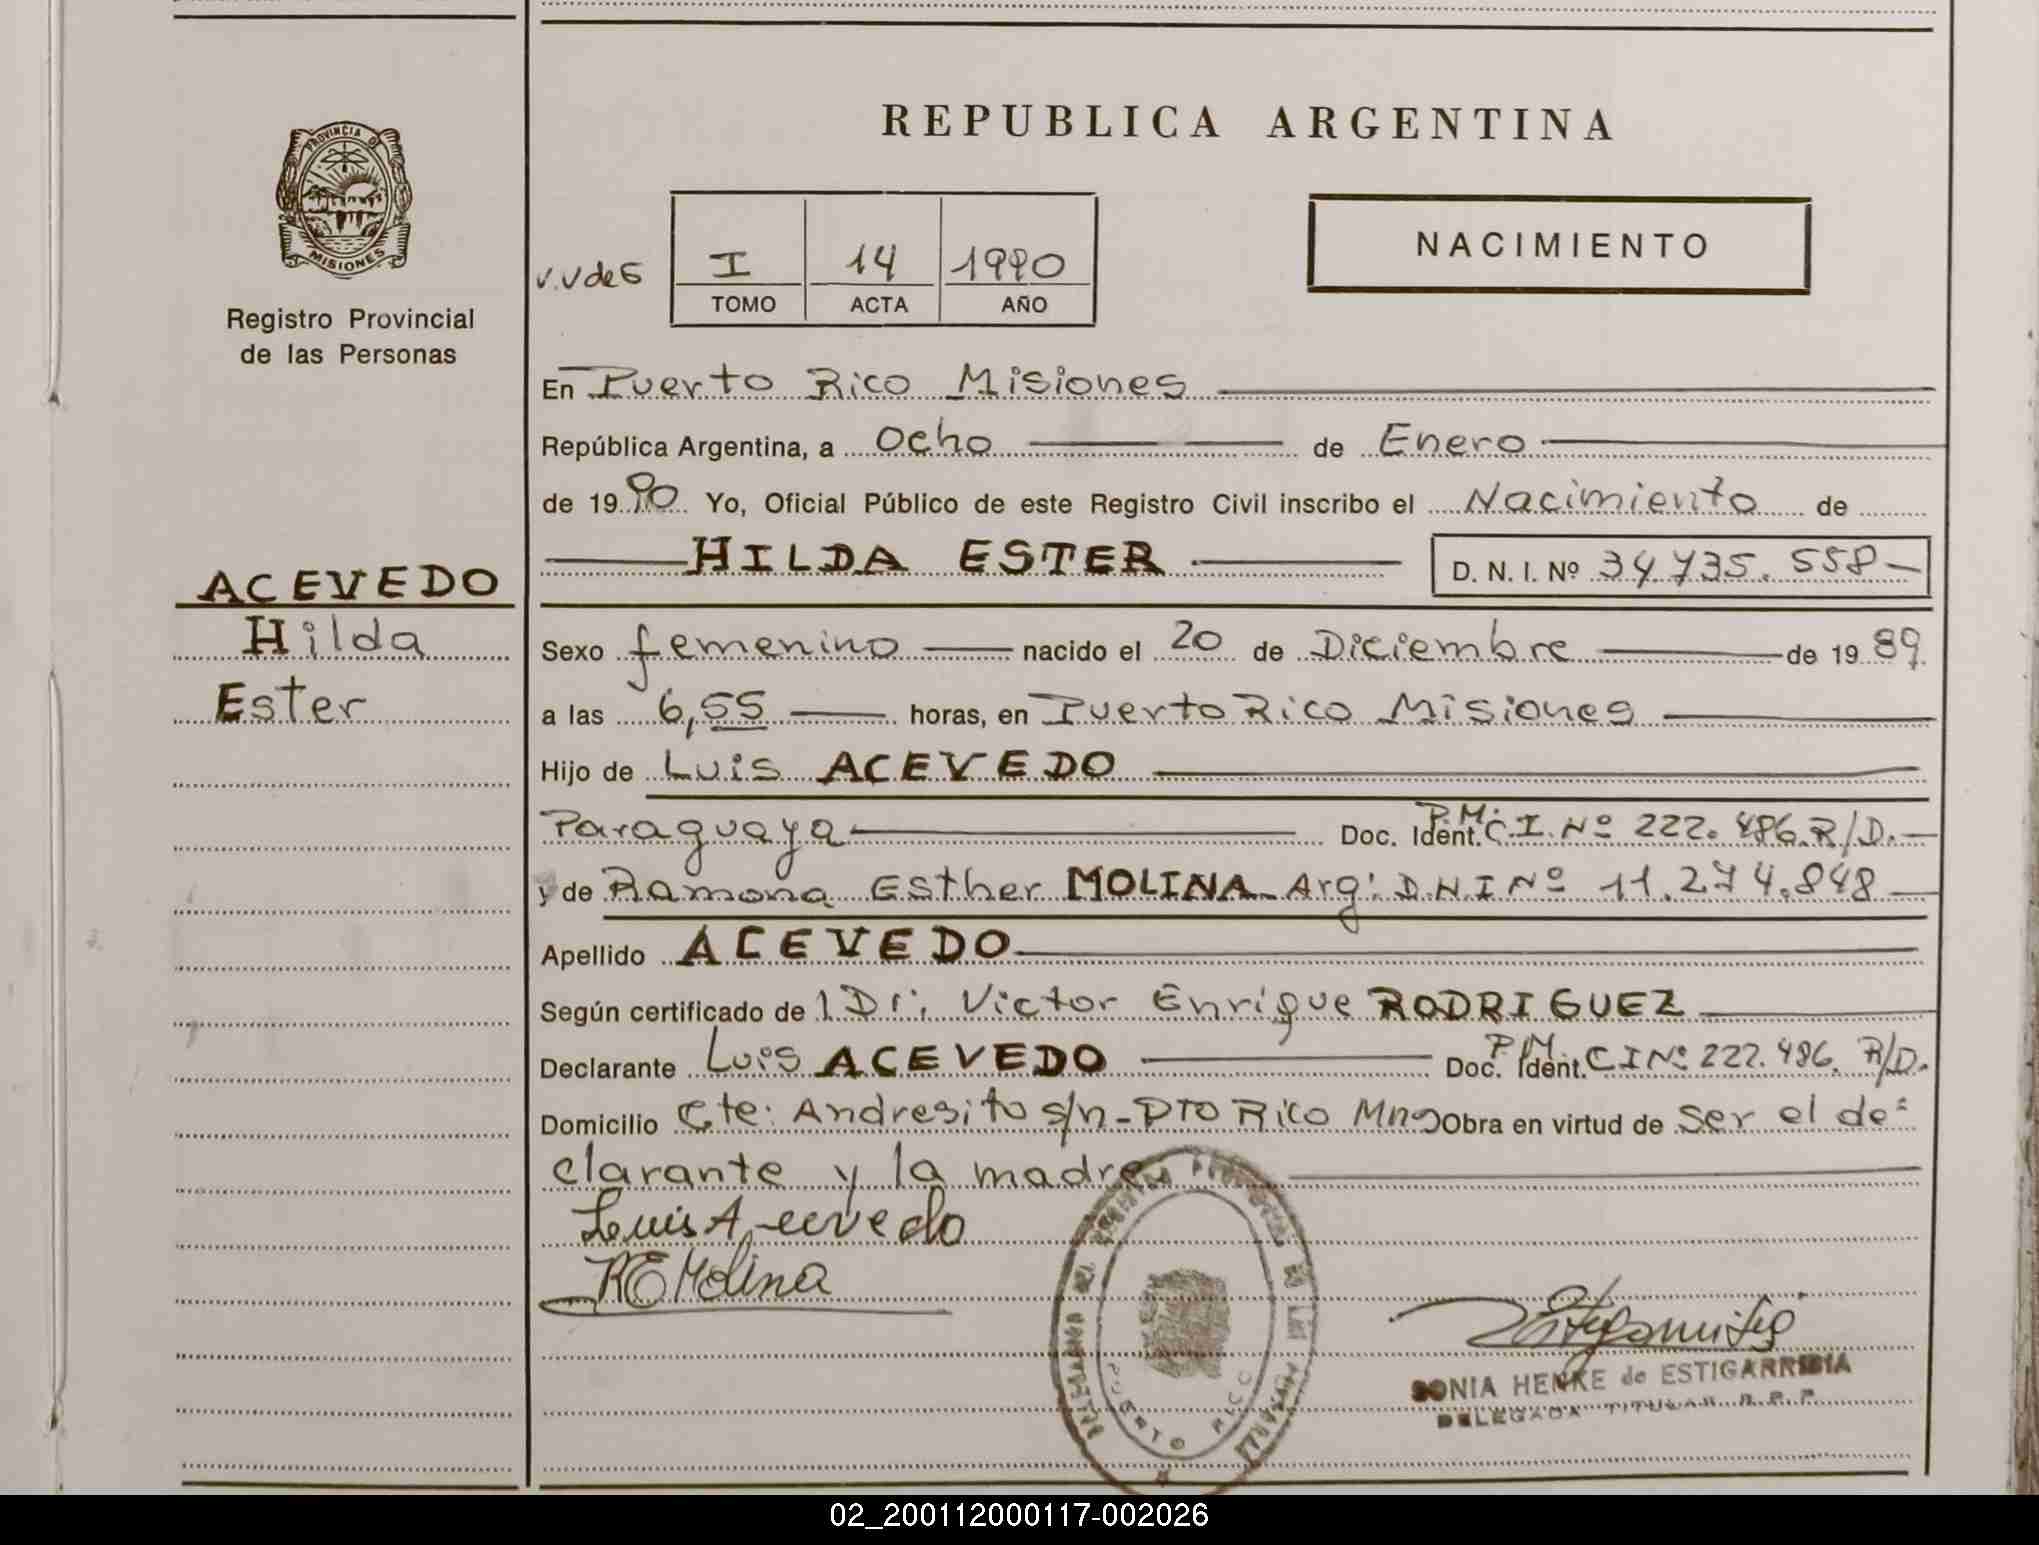 REPUBLICA ARGENTINA
PROVINCIA DE
MISIONES
Registro Provincial
de las Personas
v.v de 5
I 14 1990
TOMO ACTA AÑO
NACIMIENTO
En Puerto Rico Misiones
República Argentina, a Ocho de Enero
de 1990 Yo, Oficial Público de este Registro Civil inscribo el Nacimiento de
HILDA ESTER D. N. I. Nº 34.735.558
ACEVEDO
Hilda
Ester
Sexo femenino nacido el 20 de Diciembre de 1989
a las 6,55 horas, en Puerto Rico Misiones
Hijo de Luis ACEVEDO
Paraguaya Doc. Ident. P.M. C.I. Nº 222.486.R/D.
y de Ramona Esther MOLINA Arg: D.N.I Nº 11.274.848
Apellido ACEVEDO
Según certificado de l Dr. Victor Enrique RODRIGUEZ
Declarante Luis ACEVEDO Doc. Ident. P.M. C I Nº 222.486. R/D.
Domicilio Cte: Andresito s/n - Pto Rico Mnes Obra en virtud de ser el de=
clarante y la madre
Luis Acevedo
RE Molina
PUERTO RICO
SONIA HENKE de ESTIGARRIBIA
DELEGADA TITULAR R.P.P.
02_200112000117-002026